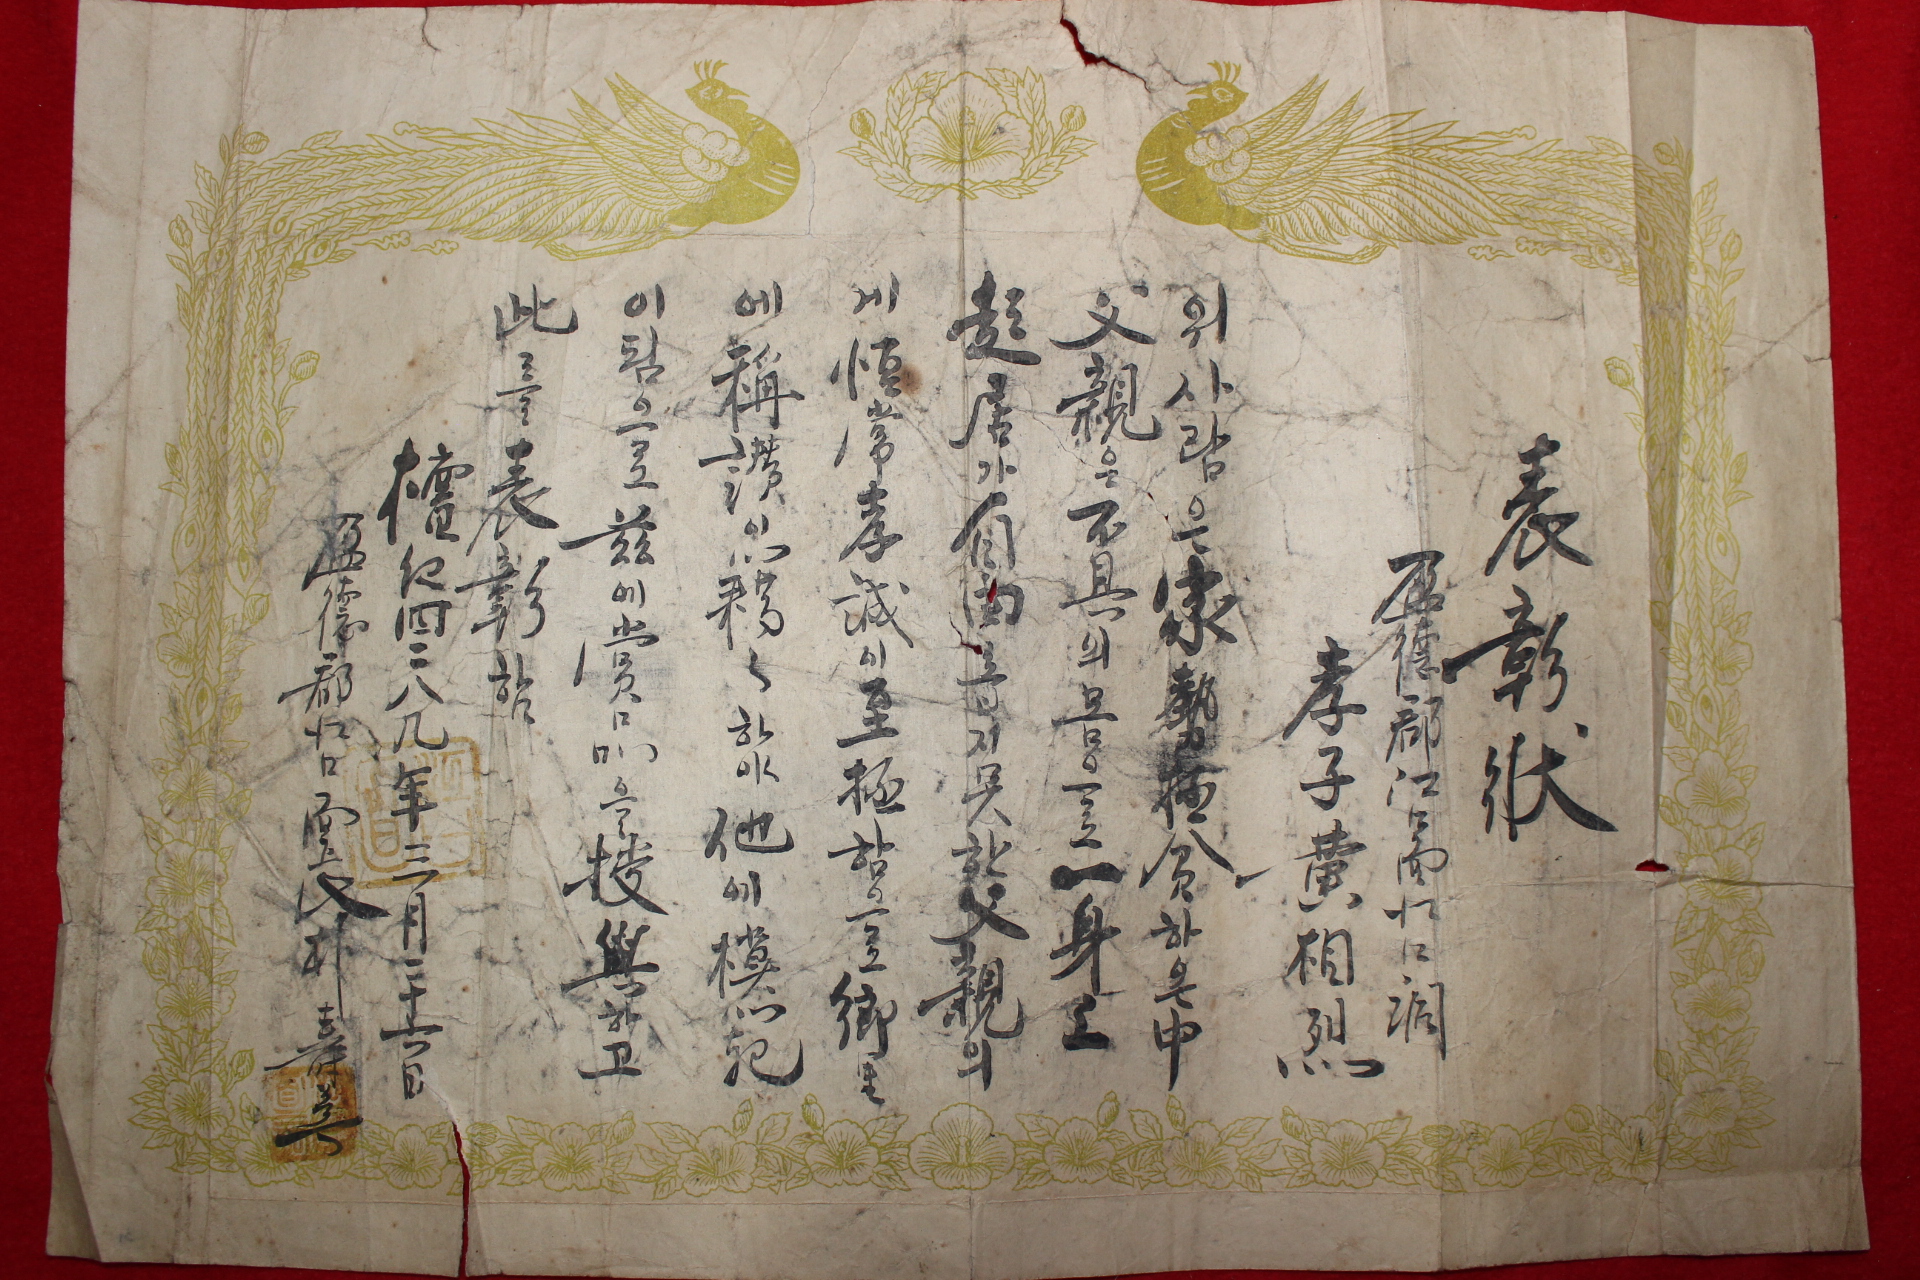 表彰狀
盈德郡江口面江口洞
孝子黃相烈
위 사람은 家勢極貧하은中
父親은 不具의 몸으로 一身上
起居가 自由롭지 못한 父親의
게 恒常孝誠이 至極함으로 鄕里
에 稱讚이 하야 他에 模範
이 됨으로 玆에 賞品 을 授與하고
此를 表彰함
檀紀四二八九年三月二十六日
盈德郡江口面長 朴壽